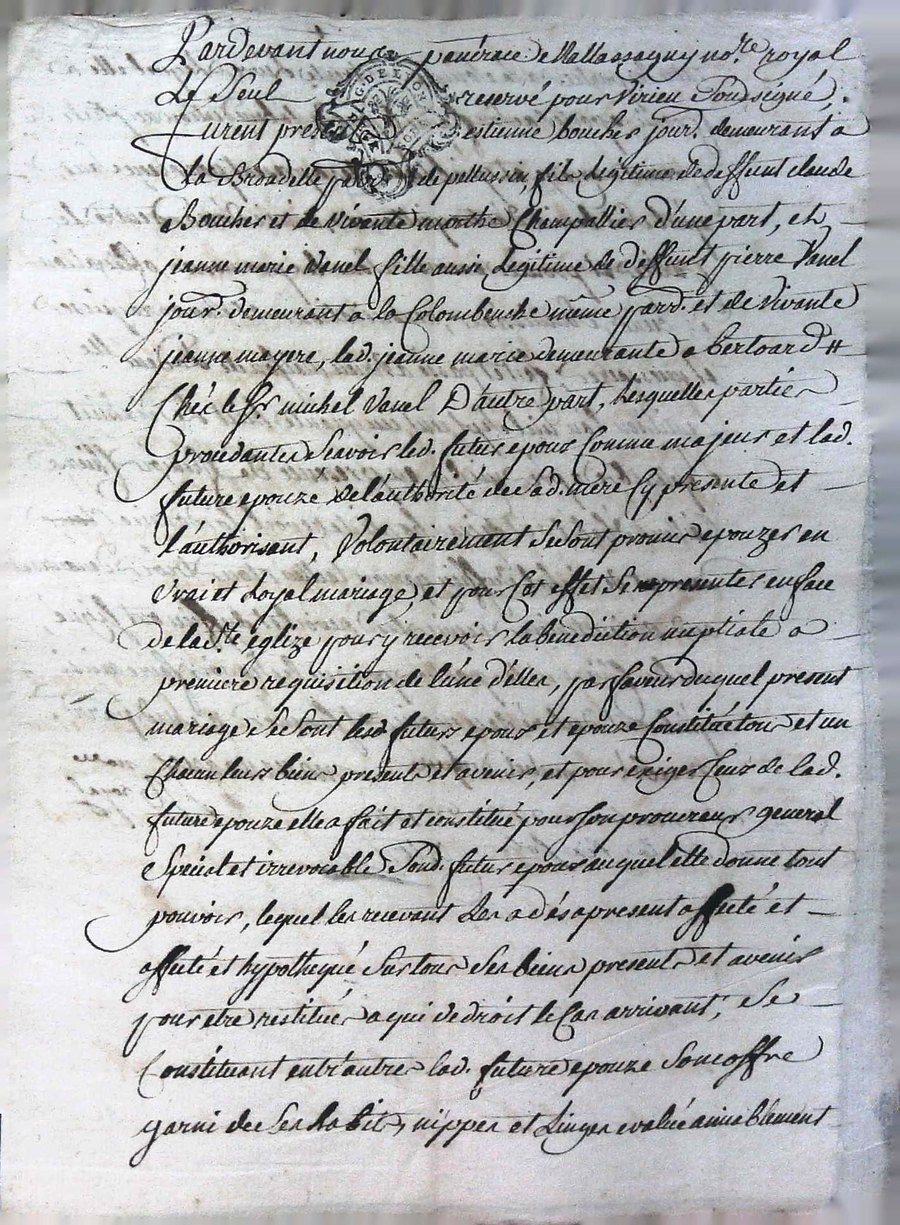 Pardevant nous pancrace de Vallassagny no.re royal
Le Seul reservé pour Virieu Soussigné,
furent present estienne boucher jour.r demeurant a
la Bradelle par.se de pellussin, fils legitime de deffunt claude
Boucher et de vivante marthe Champallier d'une part, et
jeanne marie Vanel fille aussi legitime de deffunt pierre Vanel
jour.r demeurant a la Colombenche même parr.e et de vivante
jeanne mayere, lad. jeanne marie demeurante a
Chéz le Sr michel Vanel D'autre part, Lesquelles parties
procedantes Scavoir led. futur epoux Comme majeur et lad.
future epouze de l'authorité de Sad. mere Cy presente et
l'authorisant, Volontairement Se Sont promis epouzer en
Vrai et Loyal mariage, et pour Cet effet Se representer en face
de la S.te eglize pour y recevoir la benediction nuptiale a
premiere requisition de l'une d'elles, par faveur duquel present
mariage Se Sont lesd. futurs epoux et epouze Constitué tous et un
Chacun leurs biens presents et avenir, et pour exiger Ceux de lad.
future epouze elle a fait et constitué pour Son procureur general
Special et irrevocable Sond. futur epoux auquel elle donne tout
pouvoir, lequel les recevant Les a dés apresent affecté et
affecté et hypothequé Sur tous Ses biens presents et avenir
pour etre restitués a qui de droit le Cas arrivant, Se
Constituant entr'autres lad. future epouze Son coffre
garni de Ses habits, nippes et Linges evalué amiablement